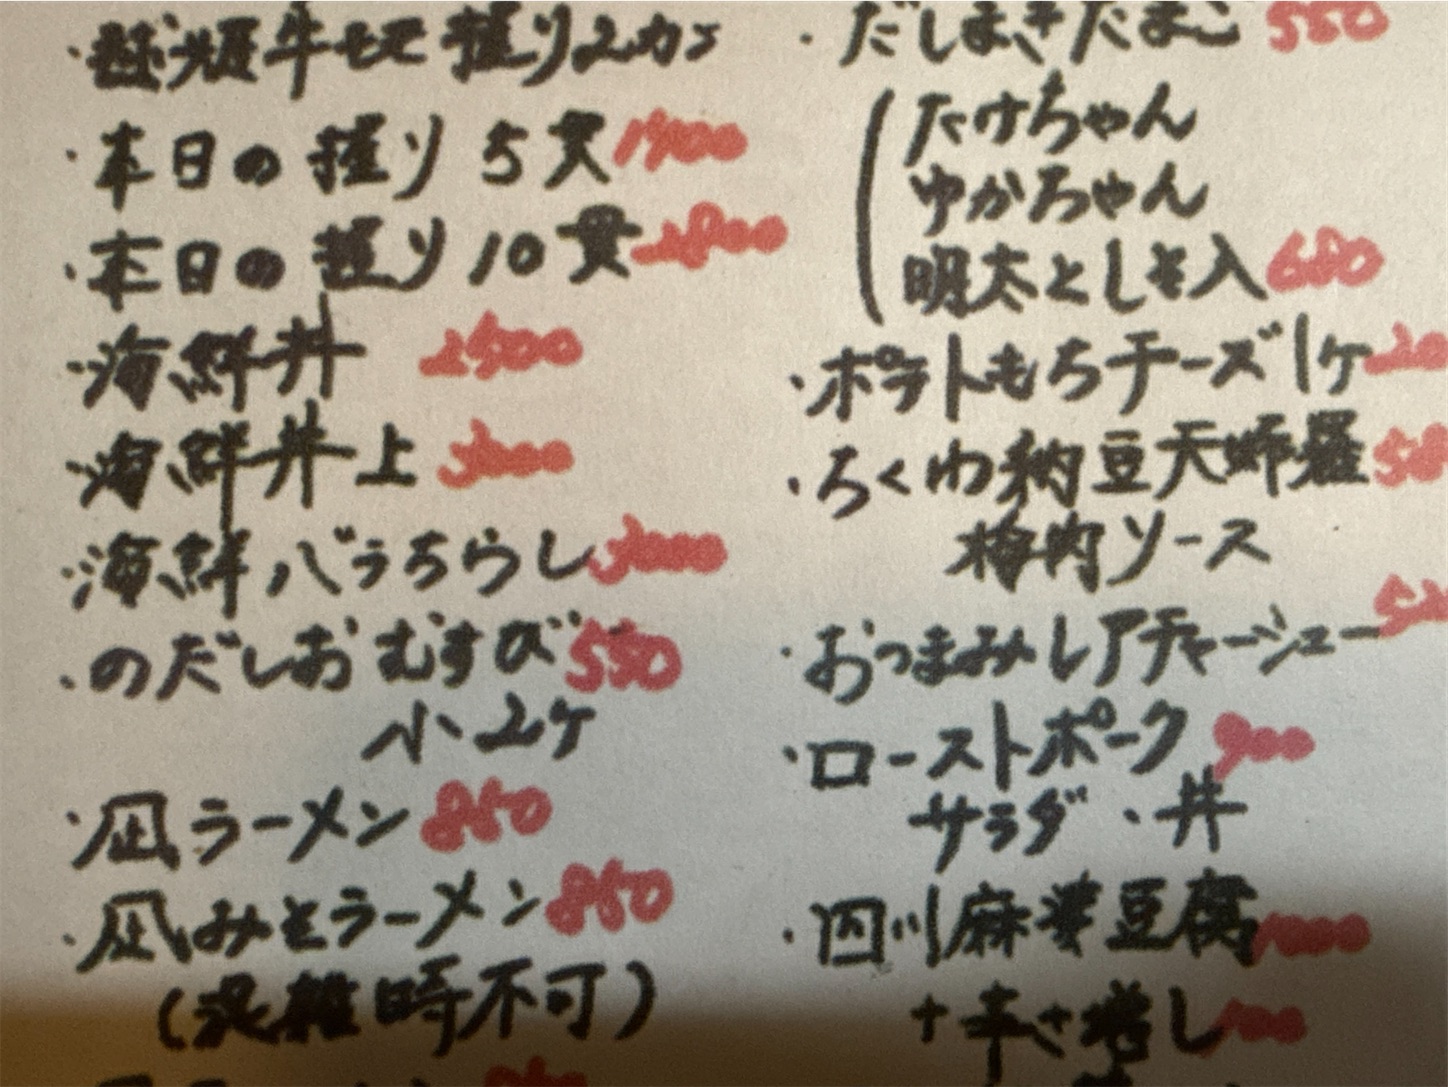 牛 握り2カン
・本日の握り 5貫 1400
・本日の握り 10貫 2800
・海鮮丼 2500
・海鮮丼上 3000
・海鮮バラちらし 3000
・のだしおむすび 550
小2ケ
・凪ラーメン 850
・凪みそラーメン 850
(混雑時不可)
・だしまきたまご 550
たけちゃん
ゆかちゃん
明太としそ入 680
・ポテトもちチーズ 1ケ
・ちくわ納豆天婦羅
梅肉ソース
・おつまみレアチャーシュー
・ローストポーク 900
サラダ・丼
・四川麻婆豆腐 1000
+辛さ増し 100